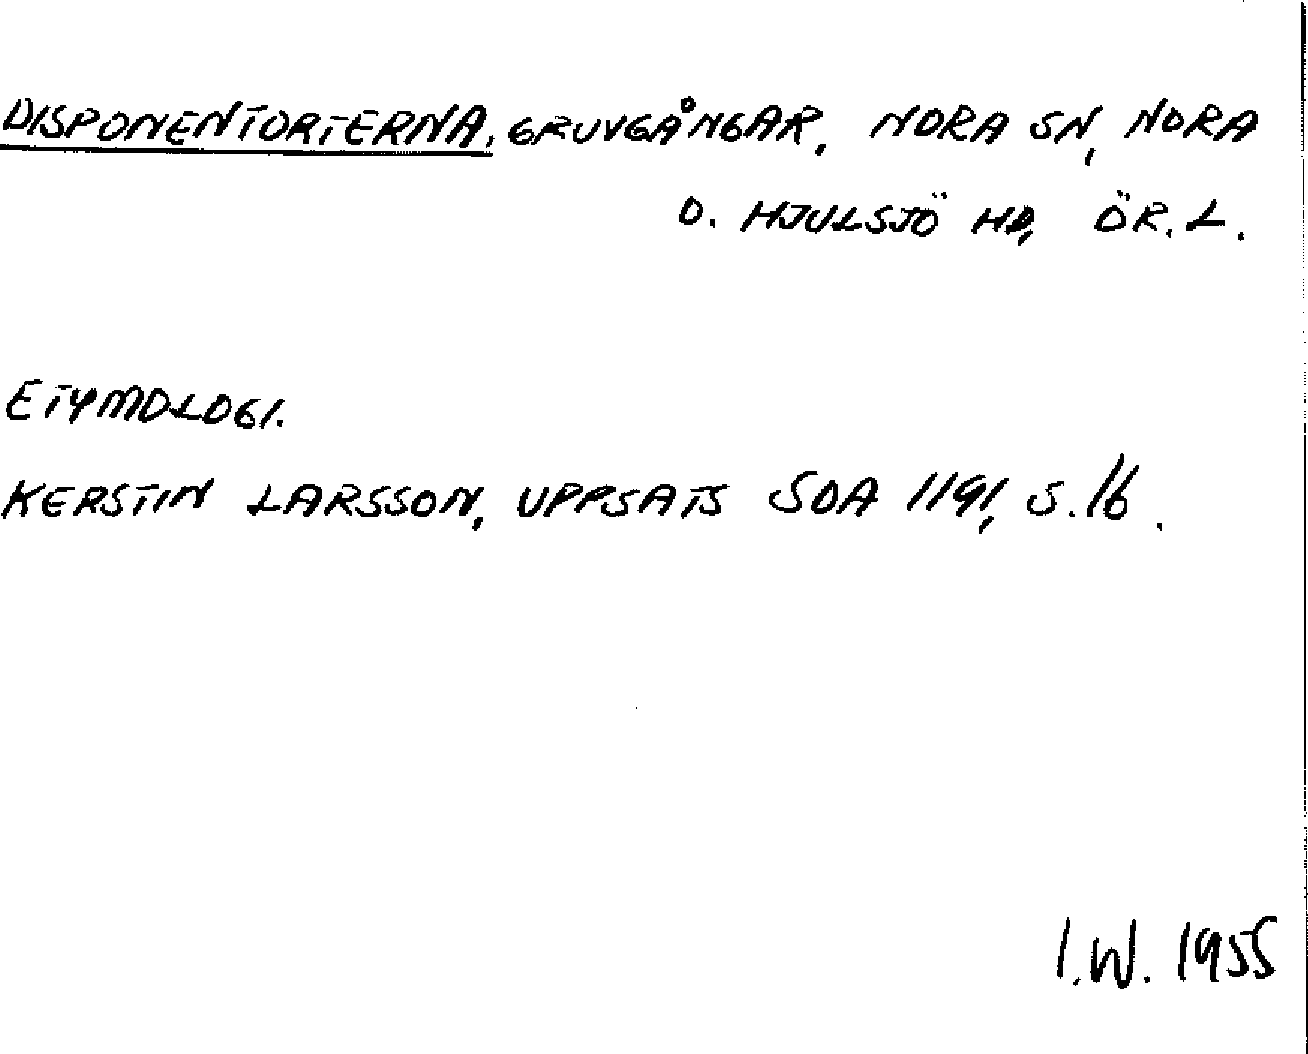 DISPONENTORTERNA, GRUVGÅNGAR, NORA SN, NORA
O. HJULSJÖ HD, ÖR. L.
ETYMOLOGI.
KERSTIN LARSSON, UPPSATS SOA 1191, S. 16.
I.W. 1955